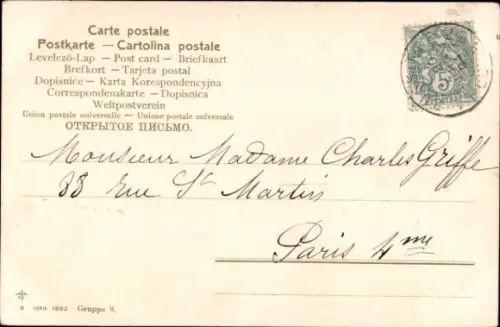 Carte postale
Postkarte — Cartolina postale
Levelező-Lap — Post card — Briefkaart
Brefkort — Tarjeta postal
Dopisnice — Karta Korespondencyjna
Correspondenzkarte — Dopisnica
Weltpostverein
Union postale universelle — Unione postale universale
ОТКРЫТОЕ ПИСЬМО.
5
Monsieur Madame Charles Griffe
88 rue St Martin
Paris 4me
Gruppe 9.